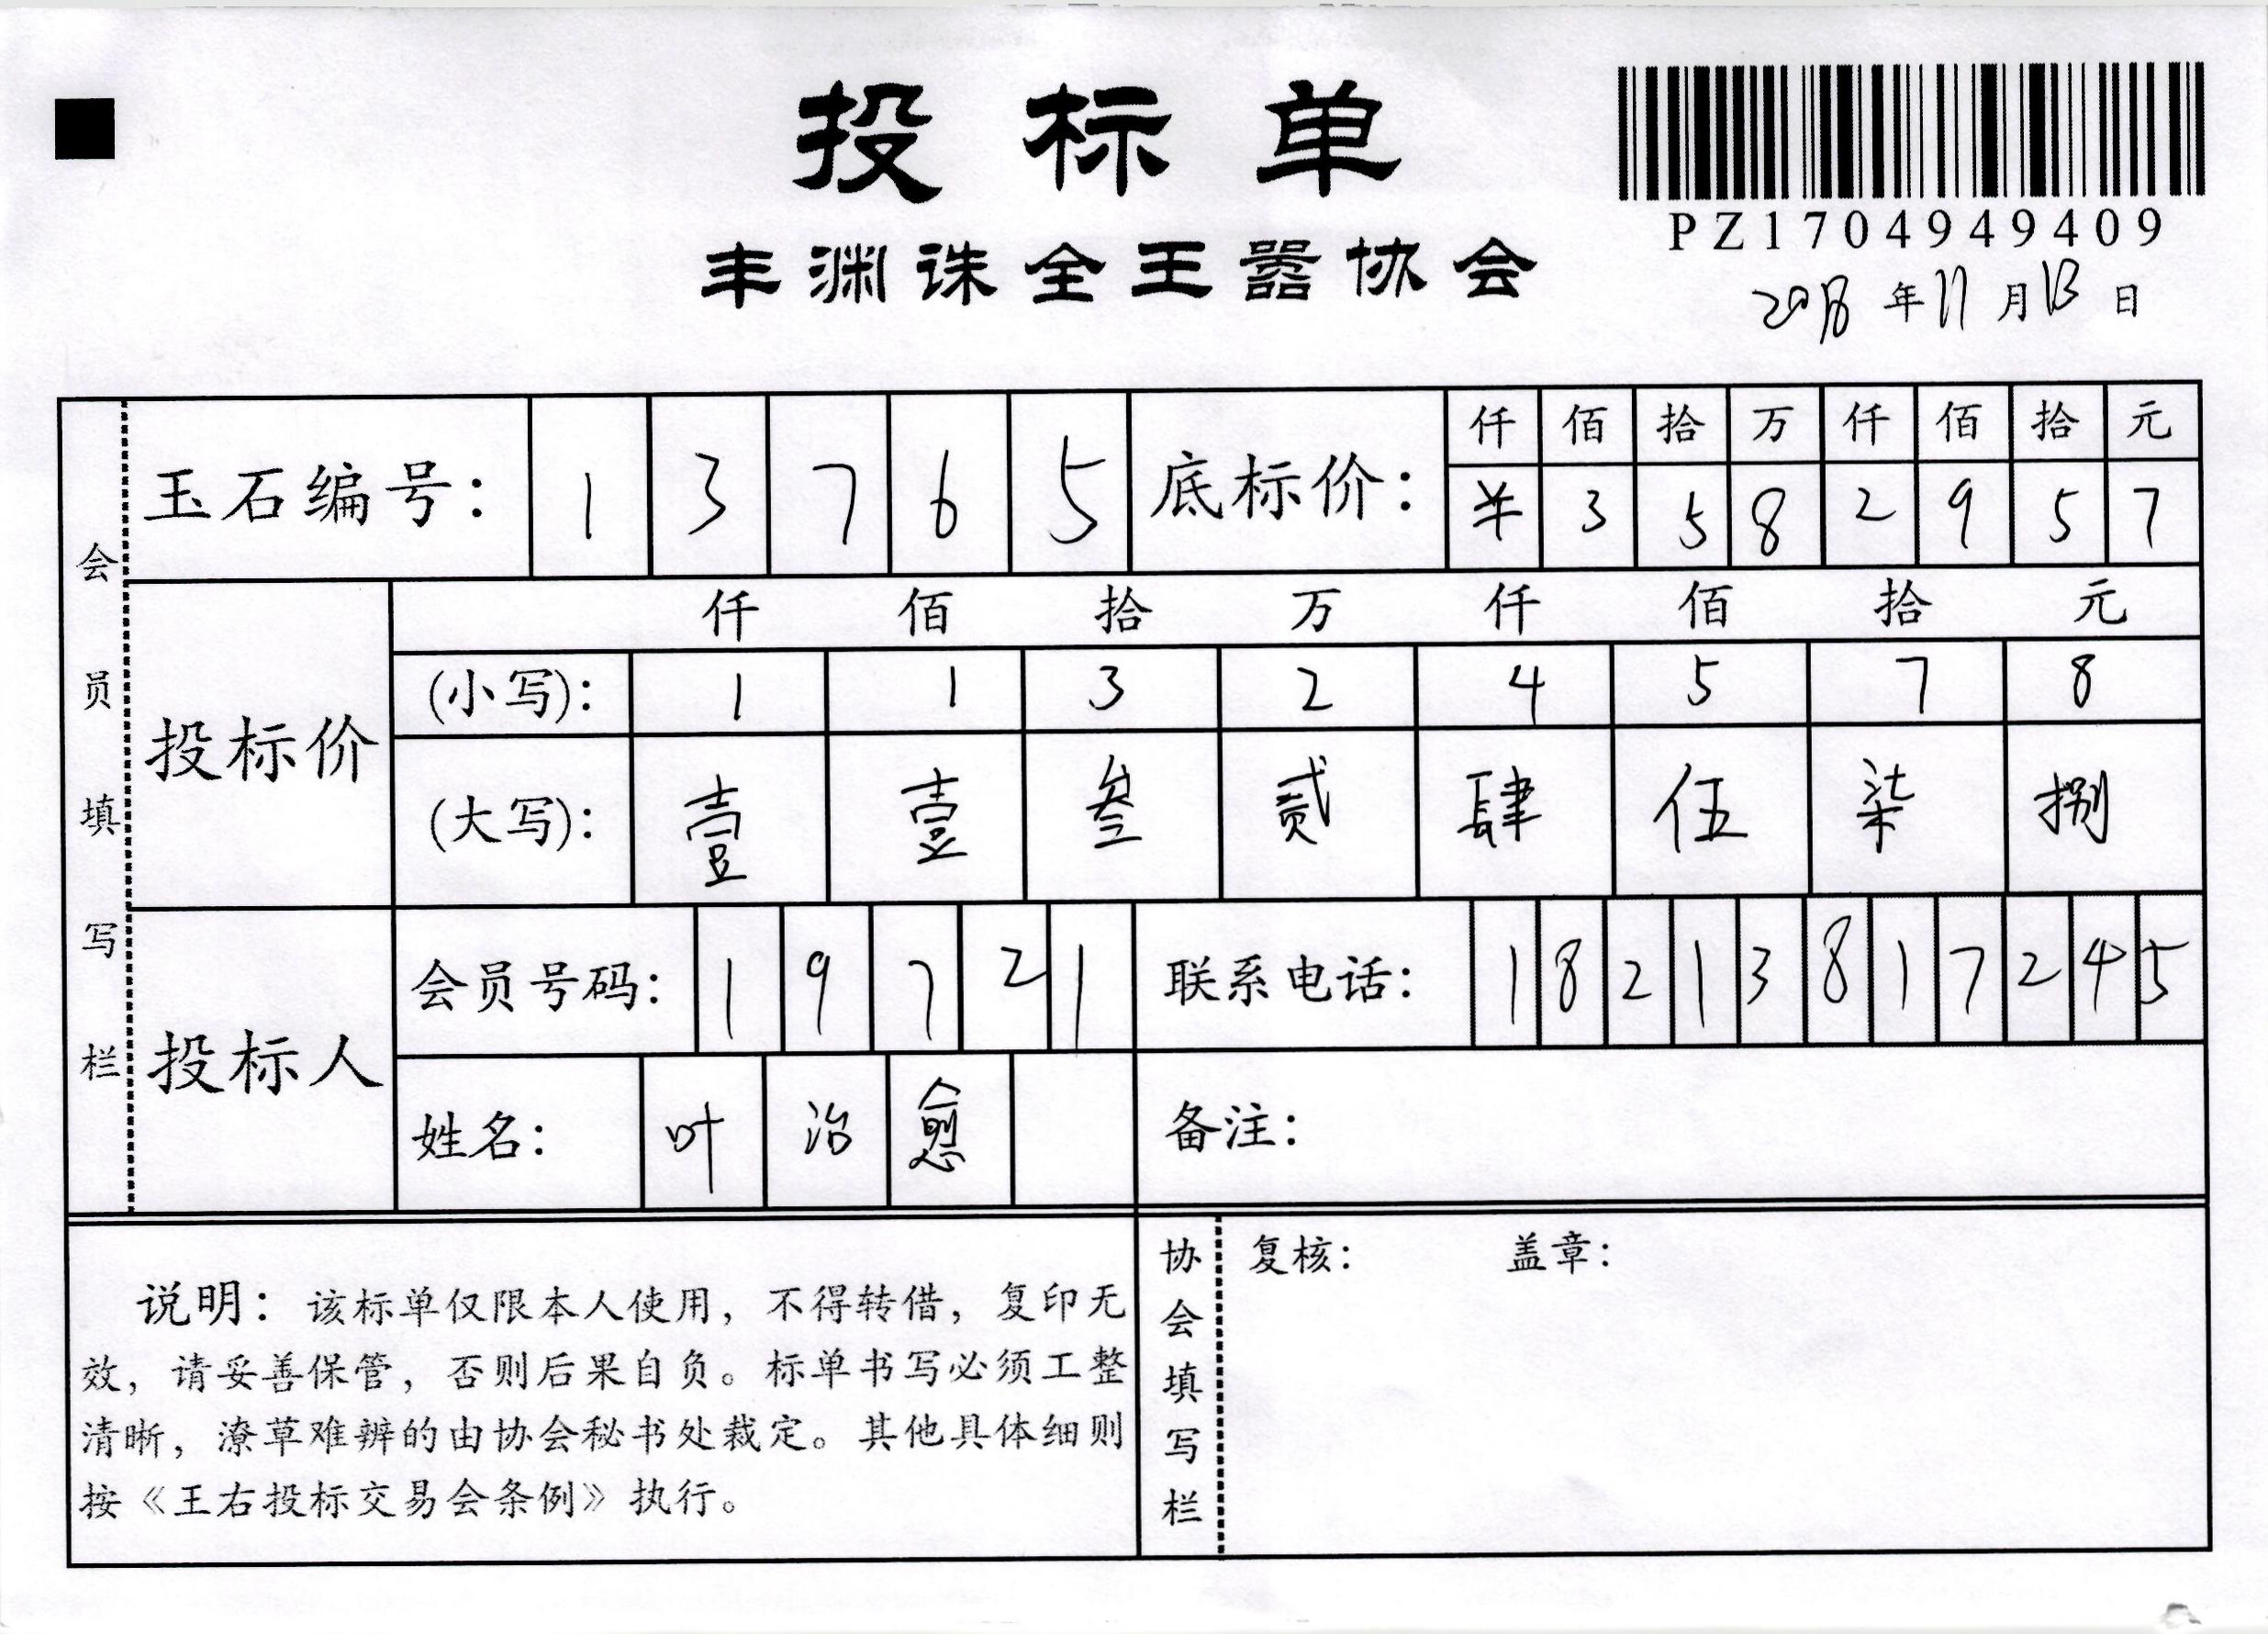 投标单
PZ1704949409
丰渊诛全王嚣协会
2018年11月13日
会员填写栏
玉石编号： 1 3 7 6 5
底标价： 仟 佰 拾 万 仟 佰 拾 元
¥ 3 5 8 2 9 5 7
投标价
仟 佰 拾 万 仟 佰 拾 元
(小写)： 1 1 3 2 4 5 7 8
(大写)： 壹 壹 叁 贰 肆 伍 柒 捌
投标人
会员号码： 1 9 7 2 1
联系电话： 1 8 2 1 3 8 1 7 2 4 5
姓名： 叶 治 愈
备注：
说明：该标单仅限本人使用，不得转借，复印无
效，请妥善保管，否则后果自负。标单书写必须工整
清晰，潦草难辨的由协会秘书处裁定。其他具体细则
按《王右投标交易会条例》执行。
协会填写栏
复核： 盖章：